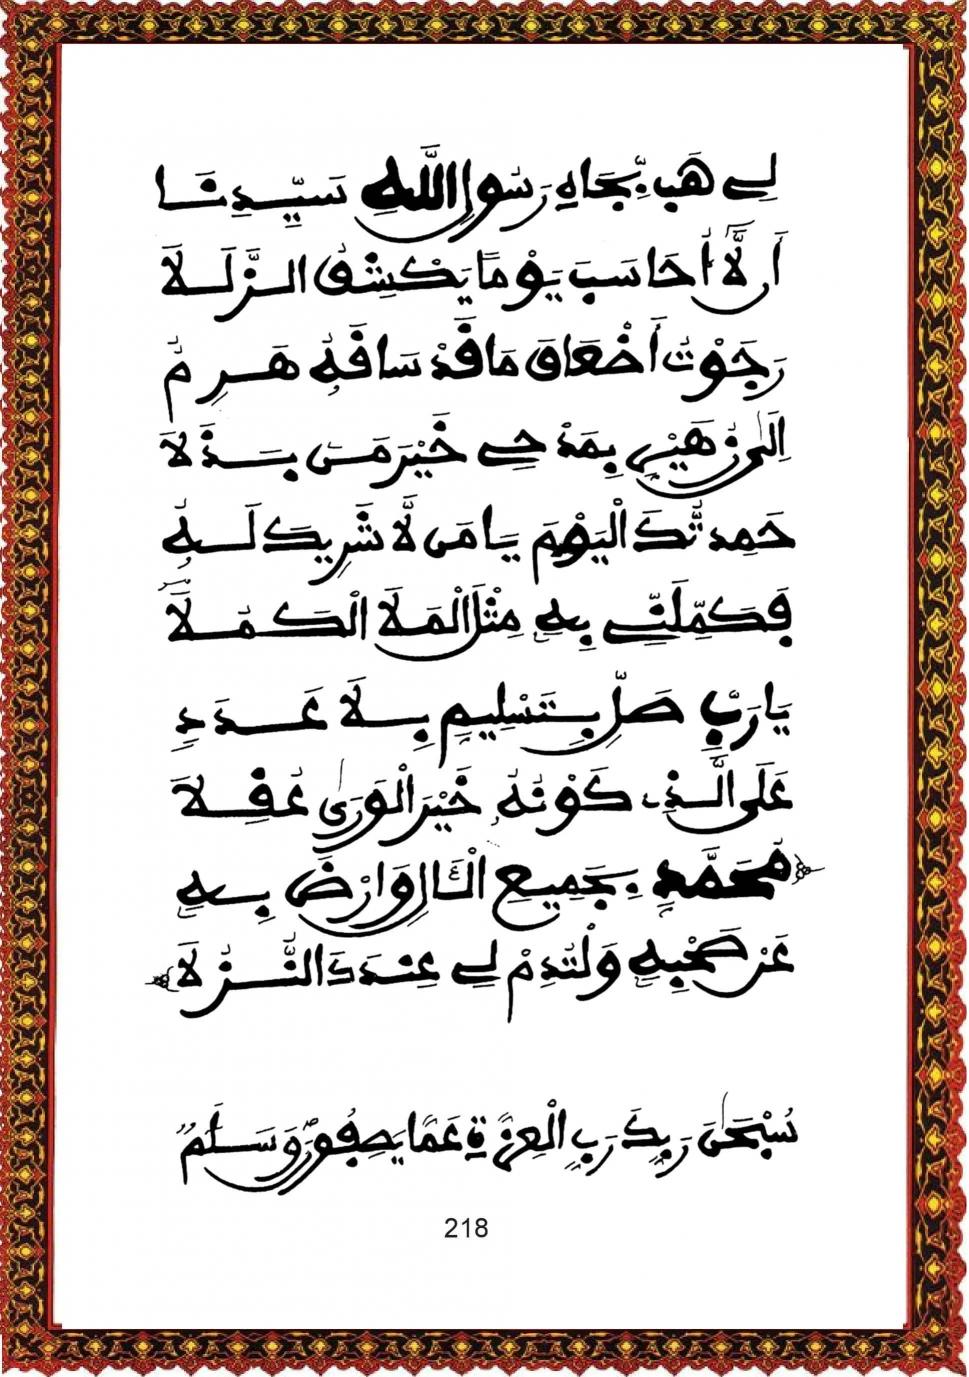 لِي هَبْ بِجَاهِ رَسُولِ اللَّهِ سَيِّدِنَا
أَن لَّا أُحَاسَبَ يَوْمًا يَكْشِفُ الزَّلَلَا
رَجَوْتُ أَضْعَافَ مَا قَدْ سَاقَهُ هَرِمُ
إِلَى زُهَيْرٍ بِمَدْحِي خَيْرَ مَن بَذَلَا
حَمِدتُّكَ الْيَوْمَ يَا مَن لَّا شَرِيكَ لَهُ
فَكَمِّلَنِّي بِهِ مِثْلَ الْمَلَا الْكُمَلَا
يَا رَبِّ صَلِّ بِتَسْلِيمٍ بِلَا عَدَدِ
عَلَى الَّذِي كَوْنُهُ خَيْرَ الْوَرَىٰ عُقِلَا
مُحَمَّدٍ بِجَمِيعِ الْآلِ وَارْضَ بِهِ
عَن صَحْبِهِ وَلْتُدِمْ لِي عِندَكَ النُّزُلَا
سُبْحَٰنَ رَبِّكَ رَبِّ الْعِزَّةِ عَمَّا يَصِفُونَ وَسَلَٰمٌ
218